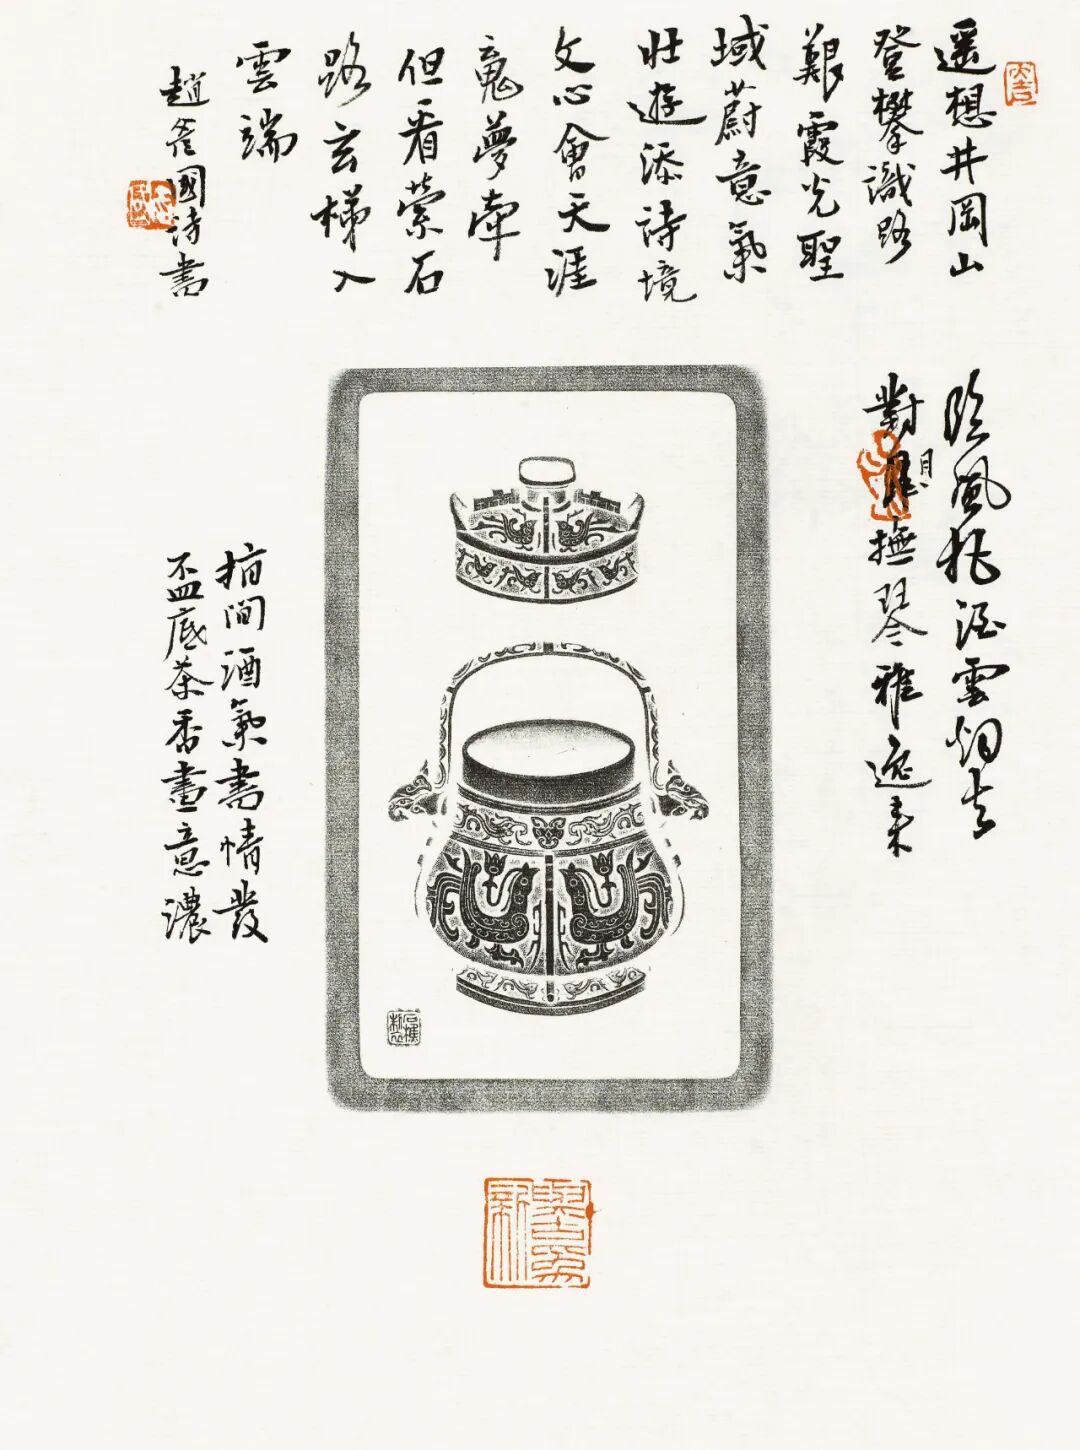 遥想井岡山
登攀識路
艱霞光聖
域蔚意氣
壯遊添詩境
文心會天涯
魂夢牽
但看萦石
路玄梯入
雲端
趙國詩書
大吉
臨風把酒雲烟去
對月撫琴雅逸來
月
指間酒氣書情發
盃底茶香畫意濃
與古爲新